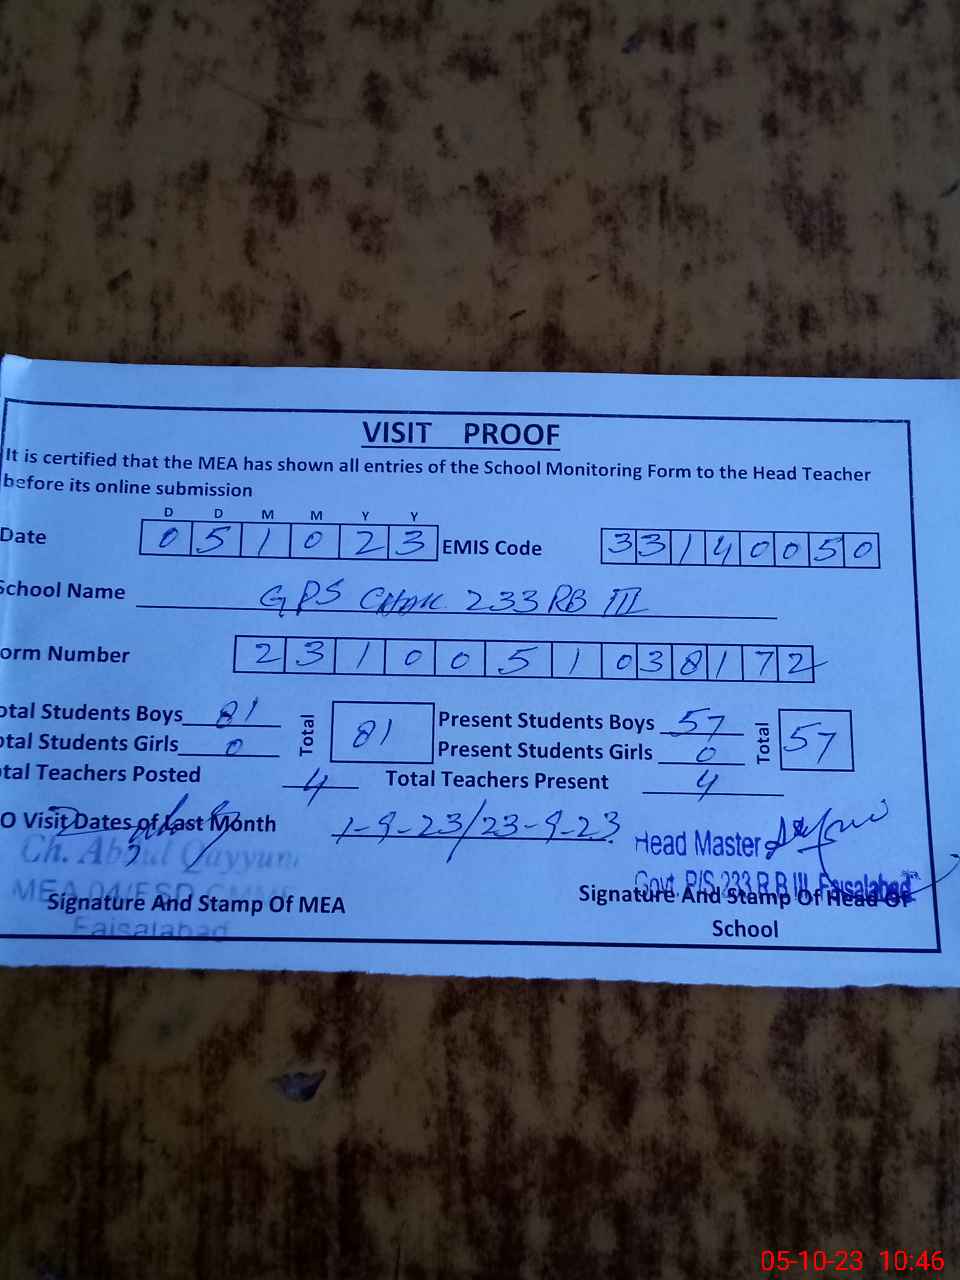 VISIT PROOF
It is certified that the MEA has shown all entries of the School Monitoring Form to the Head Teacher
before its online submission
D D M M Y Y
Date 0 5 1 0 2 3 EMIS Code 3 3 1 4 0 0 5 0
School Name GPS Chak 233 RB III
orm Number 2 3 1 0 0 5 1 0 3 8 1 7 2
otal Students Boys 81 Total 81 Present Students Boys 57 Total 57
otal Students Girls 0 Present Students Girls 0
tal Teachers Posted 4 Total Teachers Present 4
O Visit Dates of Last Month 1-9-23/23-9-23.
Ch. Abdul Qayyum
Head Master
MEA 04/FSD CMMF
Govt. P/S 233 R.B III, Faisalabad
Signature And Stamp Of MEA
Signature And Stamp Of Head Of
School
Faisalabad
05-10-23 10:46